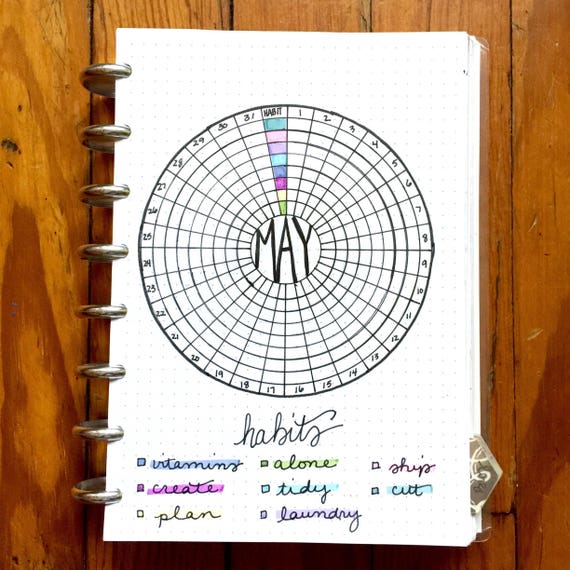 HABIT
1
2
3
4
5
6
7
8
9
10
11
12
13
14
15
16
17
18
19
20
21
22
23
24
25
26
27
28
29
30
31
MAY
habits
vitamins alone ship
create tidy cut
plan laundry